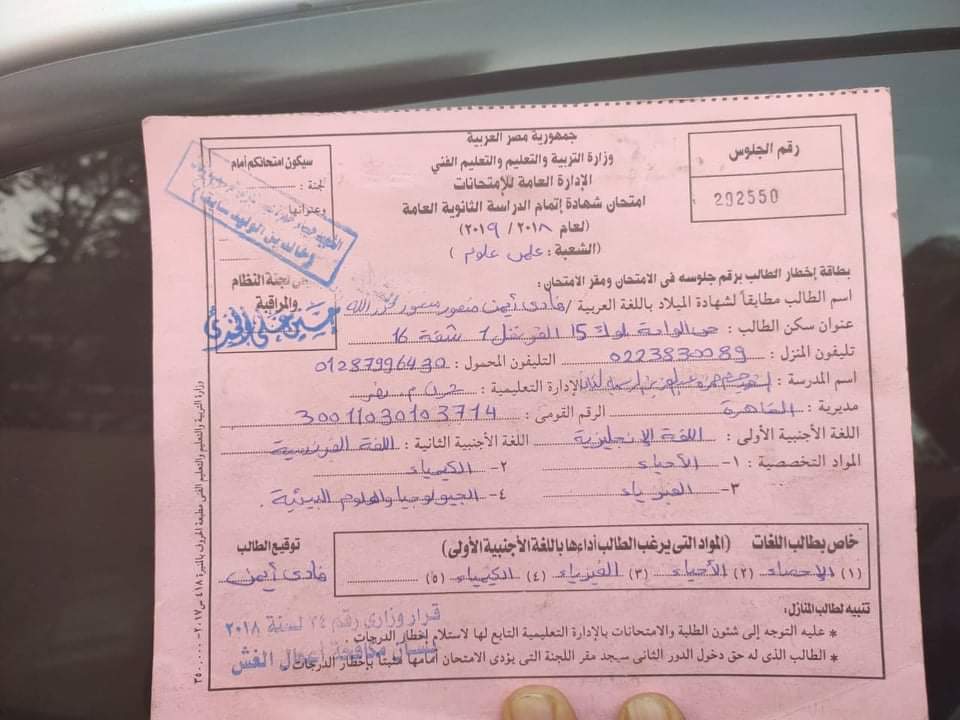 جمهورية مصر العربية
وزارة التربية والتعليم والتعليم الفني
الإدارة العامة للإمتحانات
امتحان شهادة إتمام الدراسة الثانوية العامة
(لعام ٢٠١٨ / ٢٠١٩)
(الشعبة : علمى علوم)
رقم الجلوس
202550
سيكون امتحانكم أمام
لجنة :
وعنوانها
خالد بن الوليد
لجنة النظام
والمراقبة
بطاقة إخطار الطالب برقم جلوسه فى الامتحان ومقر الامتحان :
اسم الطالب مطابقاً لشهادة الميلاد باللغة العربية / فادى أيمن منصور
عنوان سكن الطالب : حى الواحة بلوك 15 شقة 16
تليفون المنزل : 0223830089 التليفون المحمول : 01287996430
اسم المدرسة : الإدارة التعليمية : م. نصر
مديرية : القاهرة الرقم القومى : 30011030103714
اللغة الأجنبية الأولى : اللغة الإنجليزية اللغة الأجنبية الثانية : اللغة الفرنسية
المواد التخصصية : ١- الأحياء ٢- الكيمياء
٣- الفيزياء ٤- الجيولوجيا والعلوم البيئية
خاص بطالب اللغات (المواد التى يرغب الطالب أداءها باللغة الأجنبية الأولى)
(١) الإحصاء (٢) الأحياء (٣) الفيزياء (٤) الكيمياء (٥)
توقيع الطالب
فادى أيمن
تنبيه لطالب المنازل :
* عليه التوجه إلى شئون الطلبة والامتحانات بالإدارة التعليمية التابع لها لاستلام إخطار الدرجات .
* الطالب الذى له حق دخول الدور الثانى سيجد مقر اللجنة التى يؤدى الامتحان أمامها مثبتا بإخطار الدرجات .
قرار وزارى رقم ٣٤ لسنة ٢٠١٨
بشأن مكافحة اعمال الغش
وزارة التربية والتعليم والتعليم الفنى مطبعة الحروف بالمنيرة ٤١٨ س ٢٠١٧ - ٣٥٠,٠٠٠